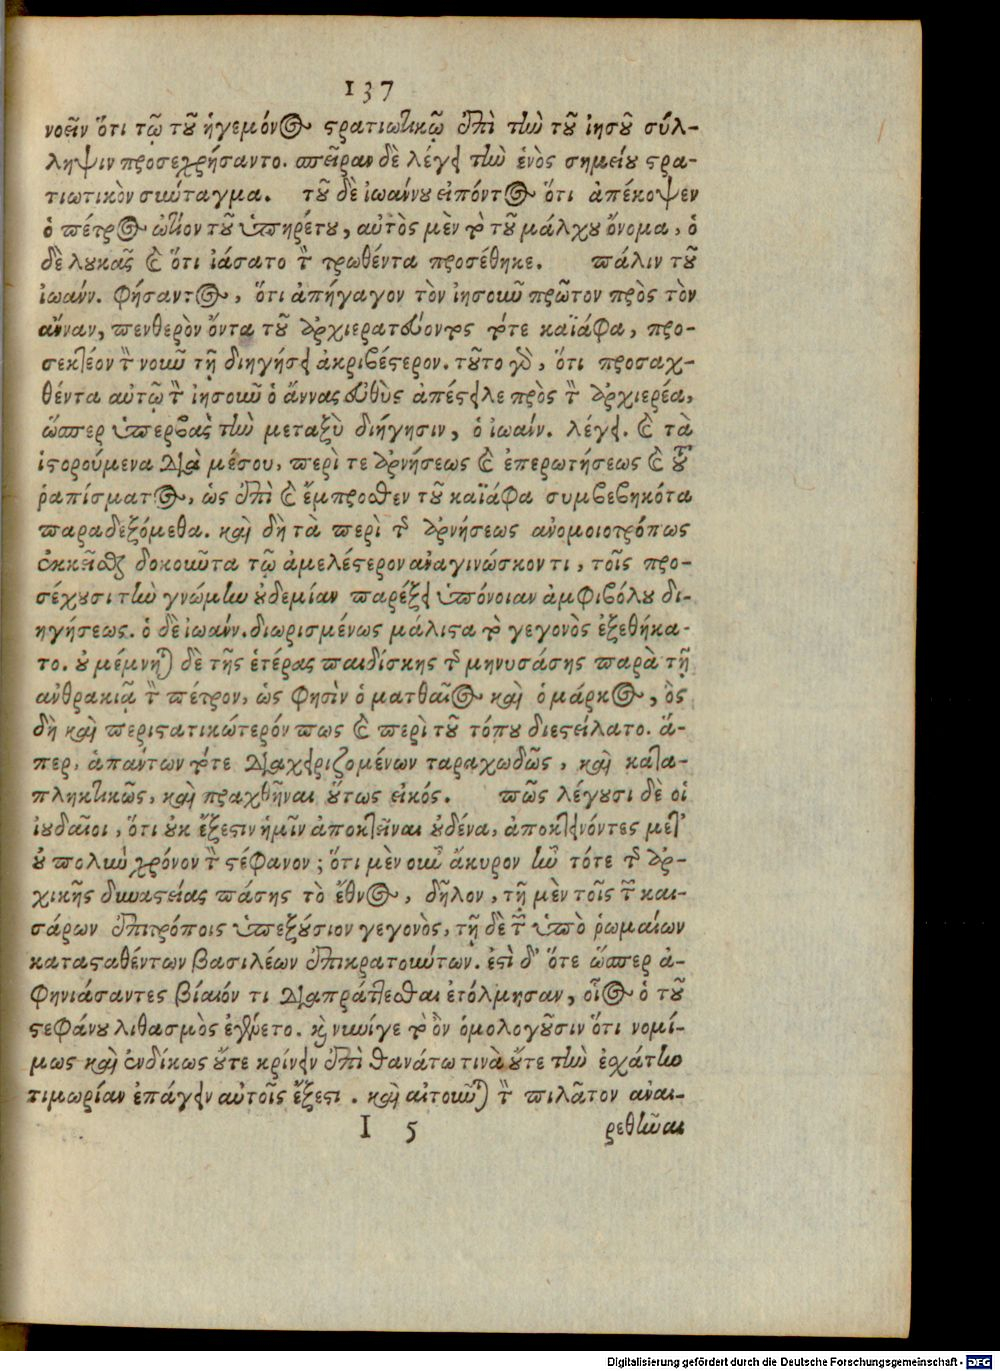 137
νοεῖν ὅτι τῷ τοῦ ἡγεμόνος στρατιωτικῷ ἐπὶ τὴν τοῦ ἰησοῦ σύλ-
ληψιν προσεχρήσαντο. σπεῖραν δὲ λέγει τὴν ἑνὸς σημείου στρα-
τιωτικὸν σύνταγμα. τοῦ δὲ ἰωάννου εἰπόντος ὅτι ἀπέκοψεν
ὁ πέτρος ὠτίον τοῦ ὑπηρέτου, αὐτὸς μὲν τὸ τοῦ μάλχου ὄνομα, ὁ
δὲ λουκᾶς καὶ ὅτι ἰάσατο τὸν τρωθέντα προσέθηκε. πάλιν τοῦ
ἰωάνν. φήσαντος, ὅτι ἀπήγαγον τὸν ἰησοῦν πρῶτον πρὸς τὸν
ἄνναν, πενθερὸν ὄντα τοῦ ἀρχιερατεύοντος τότε καϊάφα, προ-
σεκτέον τὸν νοῦν τῇ διηγήσει ἀκριβέστερον. τοῦτο γὰρ, ὅτι προσαχ-
θέντα αὐτῷ τὸν ἰησοῦν ὁ ἄννας εὐθὺς ἀπέστειλε πρὸς τὸν ἀρχιερέα,
ὥσπερ ὑπερβὰς τὴν μεταξὺ διήγησιν, ὁ ἰωάνν. λέγει. καὶ τὰ
ἱστορούμενα διὰ μέσου, περί τε ἀρνήσεως καὶ ἐπερωτήσεως καὶ τοῦ
ῥαπίσματος, ὡς ἐπὶ καὶ ἔμπροσθεν τοῦ καϊάφα συμβεβηκότα
παραδεξόμεθα. καὶ δὴ τὰ περὶ τῆς ἀρνήσεως ἀνομοιοτρόπως
ἐκκεῖσθαι δοκοῦντα τῷ ἀμελέστερον ἀναγινώσκοντι, τοῖς προ-
σέχουσι τὴν γνώμην οὐδεμίαν παρέξει ὑπόνοιαν ἀμφιβόλου δι-
ηγήσεως. ὁ δὲ ἰωάνν. διωρισμένως μάλιστα τὸ γεγονὸς ἐξεθήκα-
το. οὐ μέμνηται δὲ τῆς ἑτέρας παιδίσκης τῆς μηνυσάσης παρὰ τῇ
ἀνθρακιᾷ τὸν πέτρον, ὡς φησὶν ὁ ματθαῖος καὶ ὁ μάρκος, ὃς
δὴ καὶ περιστατικώτερόν πως καὶ περὶ τοῦ τόπου διεστείλατο. ἅ-
περ, ἁπάντων τότε διαχειριζομένων ταραχωδῶς, καὶ κατα-
πληκτικῶς, καὶ πραχθῆναι οὕτως εἰκός. πῶς λέγουσι δὲ οἱ
ἰουδαῖοι, ὅτι οὐκ ἔξεστιν ἡμῖν ἀποκτεῖναι οὐδένα, ἀποκτείνοντες μετ᾽
οὐ πολὺν χρόνον τὸν στέφανον; ὅτι μὲν οὖν ἄκυρον ἦν τότε τῆς ἀρ-
χικῆς δυναστείας πάσης τὸ ἔθνος, δῆλον, τῇ μὲν τοῖς τῶν και-
σάρων ἐπιτρόποις ὑπεξούσιον γεγονὸς, τῇ δὲ τῶν ὑπὸ ῥωμαίων
κατασταθέντων βασιλέων ἐπικρατούντων. ἔστι δ᾽ ὅτε ὥσπερ ἀ-
φηνιάσαντες βίαιόν τι διαπράττεσθαι ἐτόλμησαν, οἷος ὁ τοῦ
στεφάνου λιθασμὸς ἐγένετο. καὶ νῦν γε τὸ ὂν ὁμολογοῦσιν ὅτι νομί-
μως καὶ ἐνδίκως οὔτε κρίνειν ἐπὶ θανάτῳ τινὰ οὔτε τὴν ἐσχάτην
τιμωρίαν ἐπάγειν αὐτοῖς ἔξεστι. καὶ αἰτοῦνται τὸν πιλᾶτον ἀναι-
I 5 ρεθῆναι
Digitalisierung gefördert durch die Deutsche Forschungsgemeinschaft - DFG